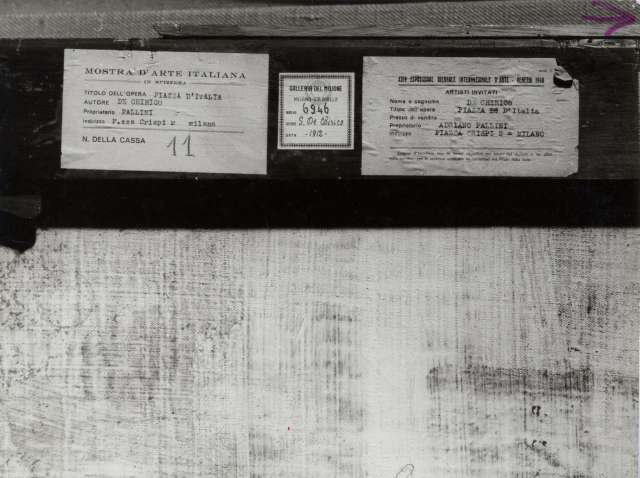 MOSTRA D'ARTE ITALIANA
IN SVIZZERA
TITOLO DELL'OPERA PIAZZA D'ITALIA
AUTORE DE CHIRICO
Proprietario PALLINI
Indirizzo P.zza Crispi 2 milano
N. DELLA CASSA 11
GALLERIA DEL MILIONE
6946
G. De Chirico
DATA -1912-
ESPOSIZIONE BIENNALE INTERNAZIONALE D'ARTE - VENEZIA 1948
ARTISTI INVITATI
Nome e cognome DE CHIRICO
Titolo dell'opera PIAZZA D'Italia
Prezzo di vendita
Proprietario ADRIANO PALLINI
Indirizzo PIAZZA CRISPI 2 = MILANO